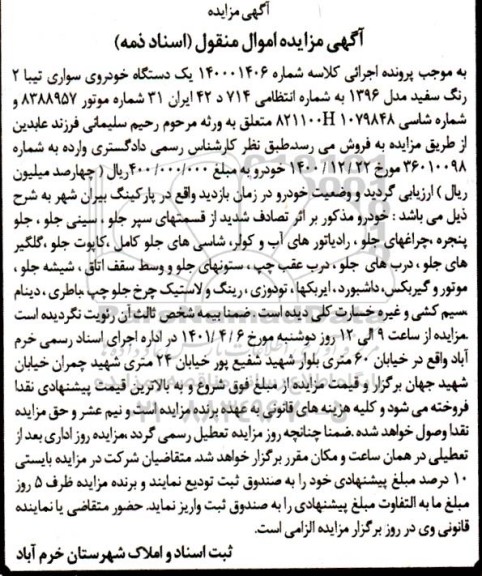 آگهی مزایده
آگهی مزایده اموال منقول (اسناد ذمه)
به موجب پرونده اجرائی کلاسه شماره ۱۴۰۰۰۱۴۰۶ یک دستگاه خودروی سواری تیبا ۲
رنگ سفید مدل ۱۳۹۶ به شماره انتظامی ۷۱۴ د ۴۲ ایران ۳۱ شماره موتور ۸۳۸۸۹۵۷ و
شماره شاسی ۸۲۱۱۰۰H۱۰۷۹۸۴۸ متعلق به ورثه مرحوم رحیم سلیمانی فرزند عابدین
از طریق مزایده به فروش می رسد.طبق نظر کارشناس رسمی دادگستری وارده به شماره
۳۶۰۱۰۰۹۸ مورخ ۱۴۰۰/۱۲/۲۲ خودرو به مبلغ ۴۰۰/۰۰۰/۰۰۰ریال ( چهارصد میلیون
ریال ) ارزیابی گردید و وضعیت خودرو در زمان بازدید واقع در پارکینگ بیران شهر به شرح
ذیل می باشد : خودرو مذکور بر اثر تصادف شدید از قسمتهای سپر جلو ، سینی جلو ، جلو
پنجره ،چراغهای جلو ، رادیاتور های آب و کولر، شاسی های جلو کامل ،کاپوت جلو ،گلگیر
های جلو ، درب های جلو ، درب عقب چپ ، ستونهای جلو و وسط سقف اتاق ، شیشه جلو ،
موتور و گیربکس،داشبورد ، ایربکها ، تودوزی ، رینگ و لاستیک چرخ جلو چپ ،باطری ، دینام
،سیم کشی و غیره خسارت کلی دیده است . ضمنا بیمه شخص ثالث آن رئویت نگردیده است
.مزایده از ساعت ۹ الی ۱۲ روز دوشنبه مورخ ۱۴۰۱/۴/۶ در اداره اجرای اسناد رسمی خرم
آباد واقع در خیابان ۶۰ متری بلوار شهید شفیع پور خیابان ۲۴ متری شهید چمران خیابان
شهید جهان برگزار و قیمت مزایده از مبلغ فوق شروع و به بالاترین قیمت پیشنهادی نقدا
فروخته می شود و کلیه هزینه های قانونی به عهده برنده مزایده است و نیم عشر و حق مزایده
نقدا وصول خواهد شده .ضمنا چنانچه روز مزایده تعطیل رسمی گردد ،مزایده روز اداری بعد از
تعطیلی در همان ساعت و مکان مقرر برگزار خواهد شد. متقاضیان شرکت در مزایده بایستی
۱۰ درصد مبلغ پیشنهادی خود را به صندوق ثبت تودیع نمایند و برنده مزایده ظرف ۵ روز
مبلغ ما به التفاوت مبلغ پیشنهادی را به صندوق ثبت واریز نماید. حضور متقاضی یا نماینده
قانونی وی در روز برگزار مزایده الزامی است.
ثبت اسناد و املاک شهرستان خرم آباد